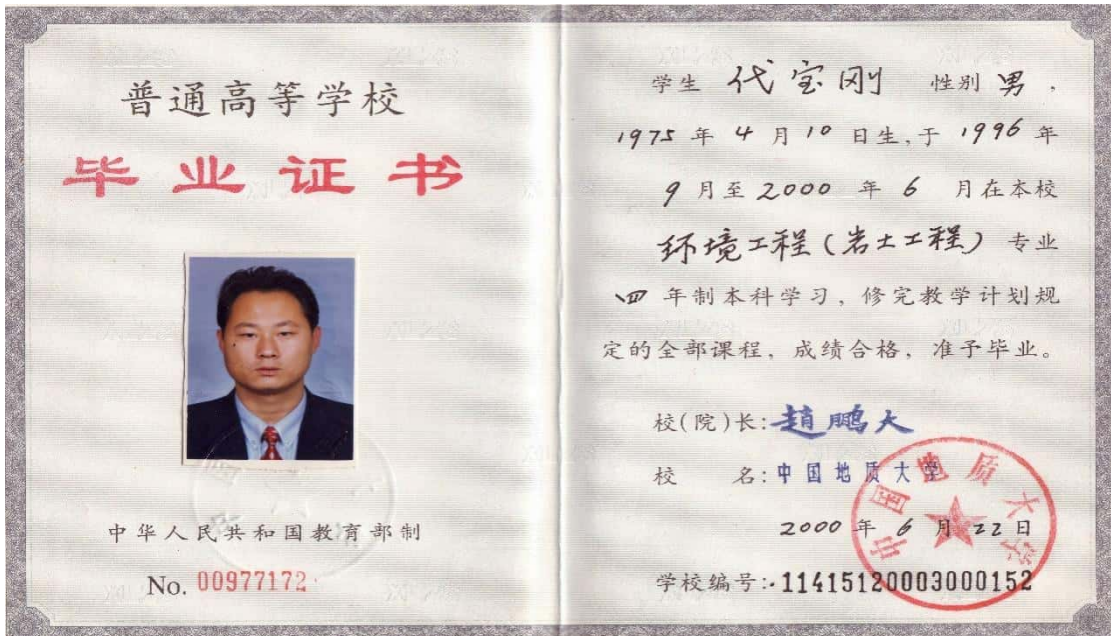 普通高等学校
毕业证书
中华人民共和国教育部制
No. 00977172
学生 代宝刚 性别 男,
1975 年 4 月 10 日生,于 1996 年
9 月至 2000 年 6 月在本校
环境工程(岩土工程) 专业
四 年制本科学习，修完教学计划规
定的全部课程，成绩合格，准予毕业。
校(院)长:趙鹏大
校 名:中国地质大学
2000 年 6 月 22 日
中国地质大学
学校编号:114151200003000152